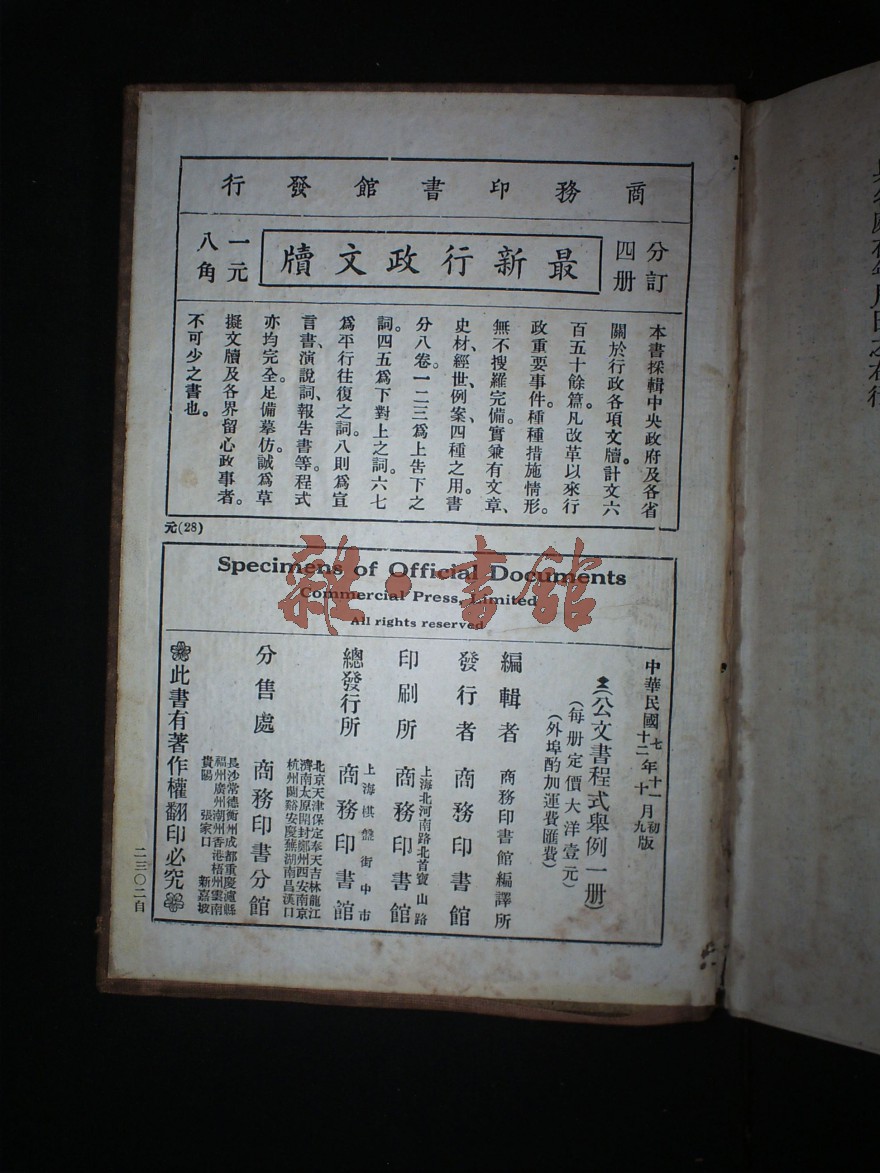 商務印書館發行
分訂四册
最新行政文牘
一元八角
本書採輯中央政府及各省
關於行政各項文牘。計文六
百五十餘篇。凡改革以來行
政重要事件。種種措施情形。
無不搜羅完備。實兼有文章、
史材、經世、例案、四種之用。書
分八卷。一二三爲上告下之
詞。四五爲下對上之詞。六七
爲平行往復之詞。八則爲宣
言書、演說詞、報告書等。程式
亦均完全。足備摹仿。誠爲草
擬文牘及各界留心政事者。
不可少之書也。
元(28)
Specimens of Official Documents
Commercial Press, Limited
All rights reserved
雜·書館
中華民國七年十一月初版
十二年十月九版
公文書程式舉例一册
(每册定價大洋壹元)
(外埠酌加運費匯費)
編輯者 商務印書館編譯所
發行者 商務印書館
印刷所 上海北河南路北首寶山路 商務印書館
總發行所 上海棋盤街中市 商務印書館
分售處 商務印書分館
北京天津保定奉天吉林龍江
濟南太原開封鄭州西安南京
杭州蘭谿安慶蕪湖南昌漢口
長沙常德衡州成都重慶瀘縣
福州廣州潮州香港梧州雲南
貴陽 張家口 新嘉坡
此書有著作權翻印必究
二三〇二自